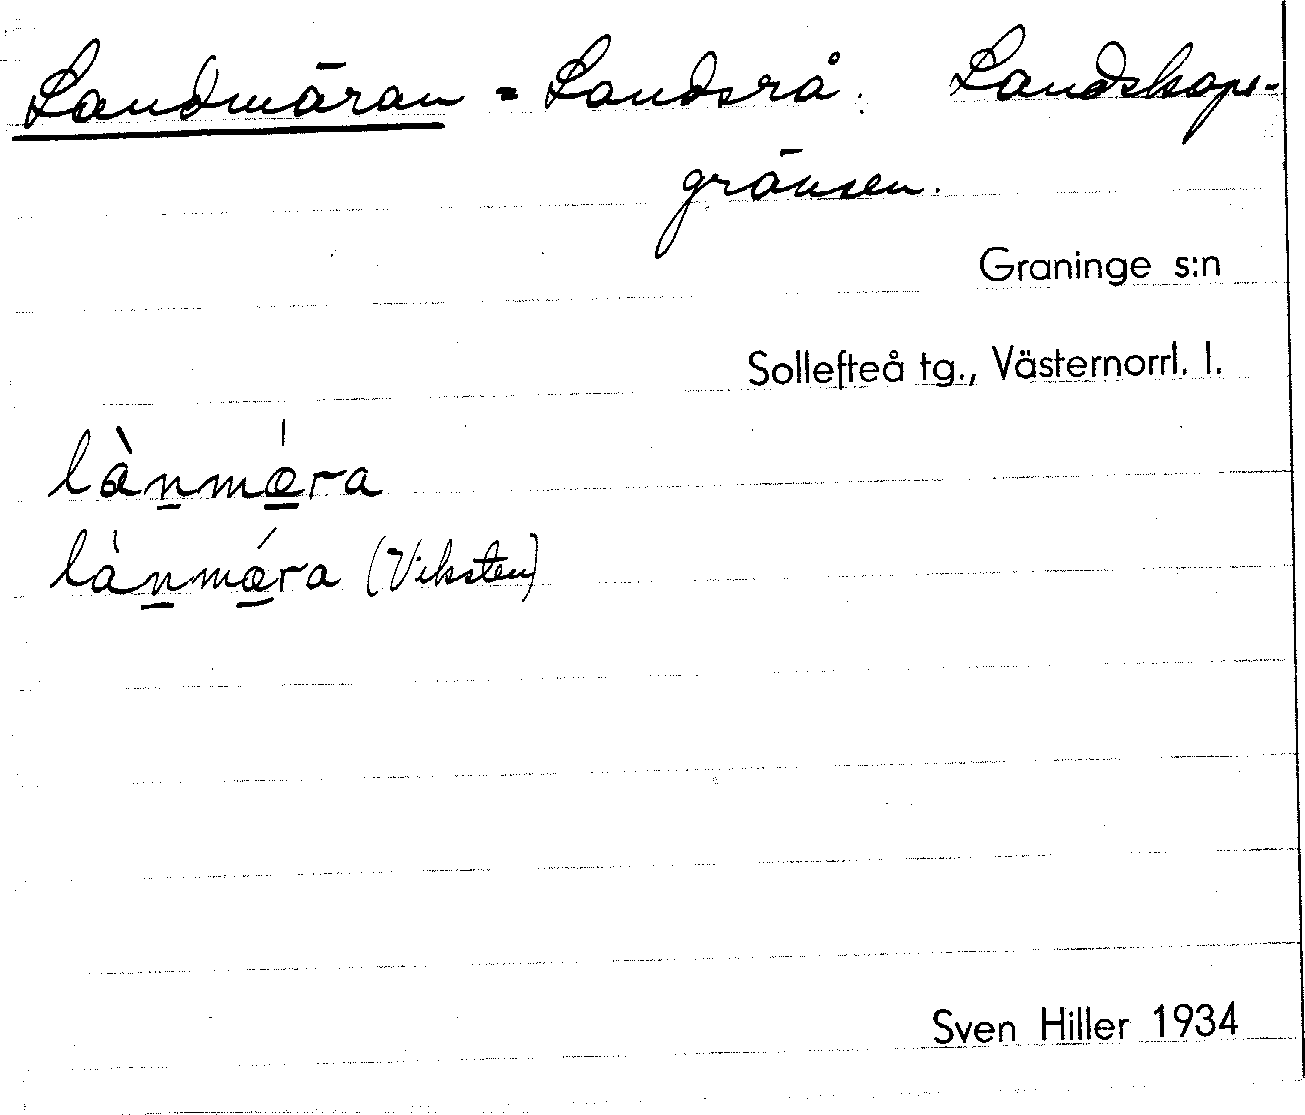 Landmäran = Landsrå. Landskaps-
gränsen.
Graninge s:n
Sollefteå tg., Västernorrl. l.
lànmǽra
lànmǽra (Viksten)
Sven Hiller 1934